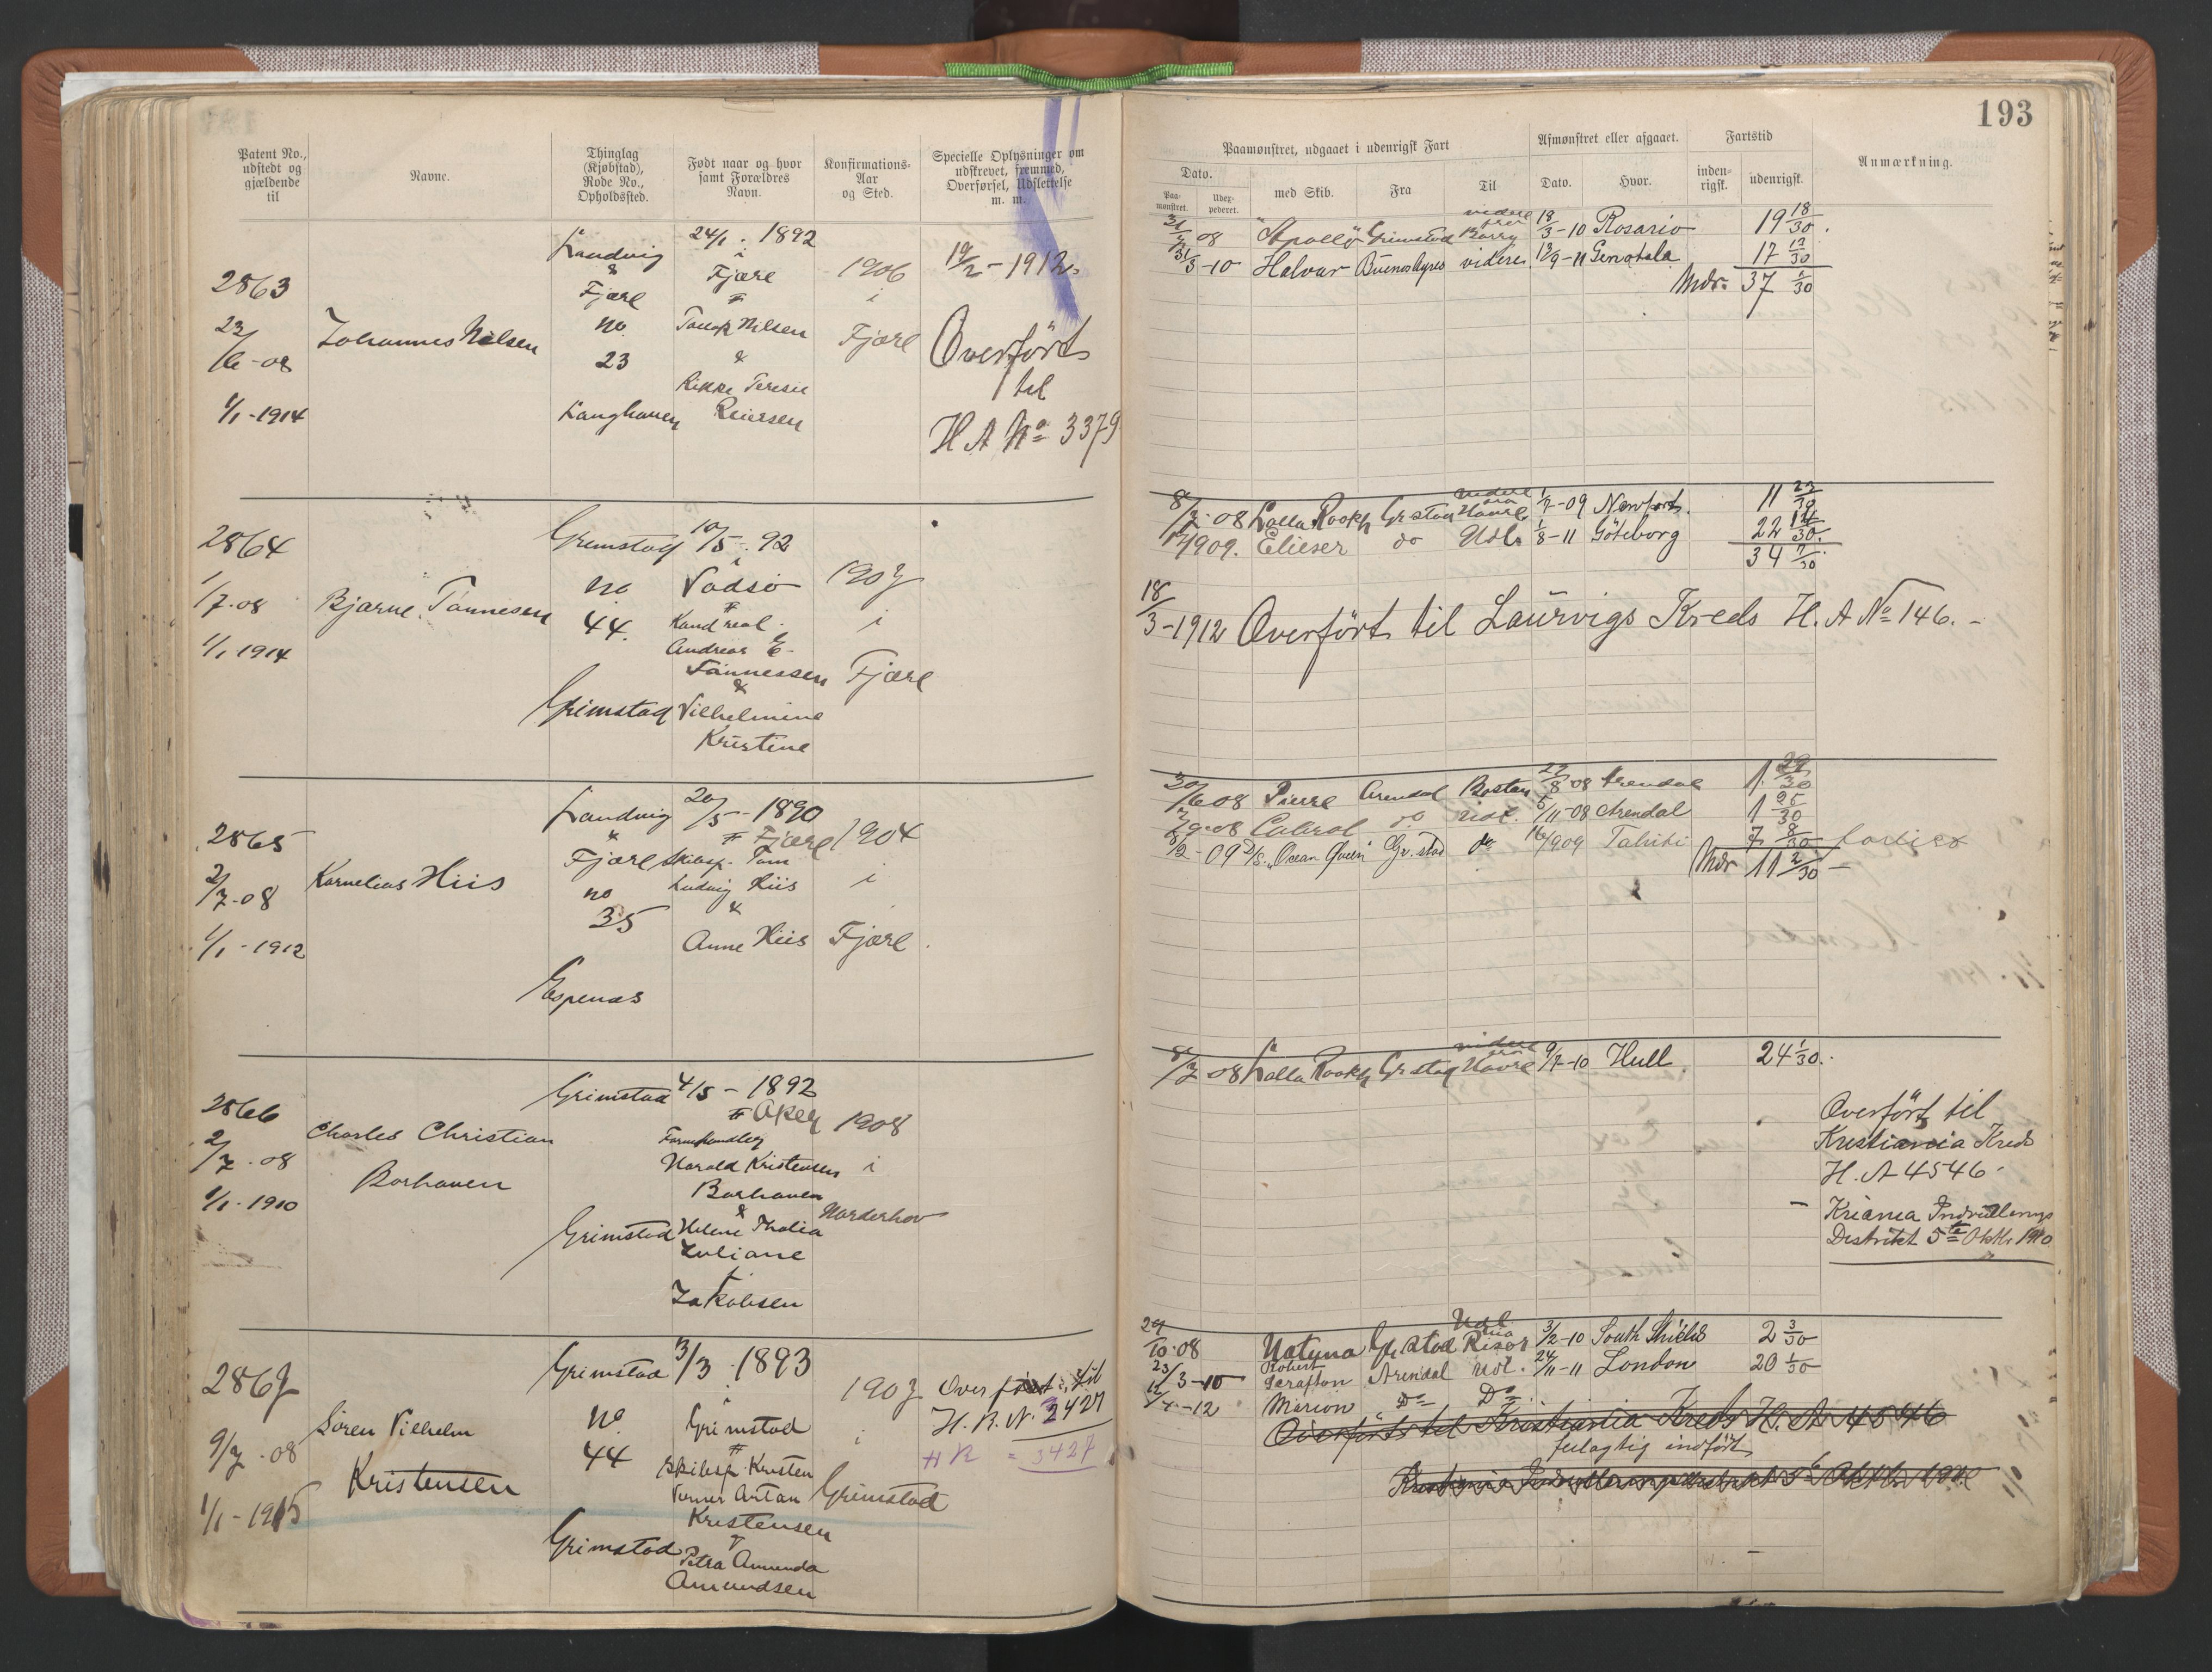 193
Patent No., udstedt og gjældende til
Navne.
Thinglag (Kjøbstad), Rode No., Opholdssted.
Født naar og hvor samt Forældres Navn.
Konfirmations-Aar og Sted.
Specielle Oplysninger om udskrevet, fremmed, Overførsel, Udslettelse m. m.
Paamønstret, udgaaet i udenrigsk Fart
Afmønstret eller afgaaet.
Fartstid
Anmærkning.
Dato.
Paa-mønstret.
Udex-pederet.
med Skib.
Fra
Til
Dato.
Hvor.
inden-rigsk.
udenrigsk.
2863
23/6-08
1/1-1914
Johannes Nilsen
Landvig & Fjære
no
23
Langhaven
24/1. 1892
i
Fjære
F
Nilsen
&
Rikke Teresie
Reiersen
1906
i
Fjære
19/2-1912.
Overført
til
H A No 3379
08 "Apollo" Grimstad videre fra Barry 18/3-10 Rosario 19 18/30.
31/3-10 Halvar Buenos Ayres videre 12/9-11 17 13/30
Mdr. 37 1/30
2864
1/7-08
1/1 1914
Bjarne Tønnesen
Grimstad
no
44.
Grimstad
10/5-92
i
Vadsø
F
Kand real.
Andreas E
Tønnessen
&
Vilhelmine
Kristine
1907
i
Fjære
8/7-08 Lalla Rookh Gr.stad videre fra Havre 1/7-09 Newport. 11 23/30
1909. Elieser do Udl. 1/8-11 Göteborg 22 14/30.
34 7/30.
18/3-1912 Overført til Laurvigs Kreds H. A No 146.-
2865
2/7-08
1/1-1912
Kornelius Hiis
Landvig
&
Fjære
no
35
Espenæs
20/5-1890
F Fjære
Skibsp. Tom
Ludvig Hiis
&
Anne Hiis
1904
i
Fjære.
30/6 08 Pierre Arendal Boston 29/8 08 Arendal 1 29/30
9-08 Cabral do udl. 5/11-08 Arendal 1 25/30
8/2-09 S/S. "Ocean Queen" Gr.stad do 16/9 09 Tahiti 7 8/30 forliset
Mdr 11 2/30 -
2866
2/7-08
1/1-1910
Charles Christian
Borhaven
Grimstad
Grimstad
4/5-1892
F Aker
Harald Kristensen
Borhaven
&
Helene Thalia
Juliane
Jakobsen
1908
i
Norderhov
8/7 08 Lalla Rookh Gr.stad videre fra Havre 9/7-10 Hull. 24 1/30.
Overført til
Kristiania Kreds
H. A 4546-
- Kriania Indrullerings
Distrikt 5te Oktbr. 1910
2867
9/7-08
1/1-1915
Søren Vilhelm
Kristensen
Grimstad
No.
44
Grimstad
3/3. 1893
i
Grimstad
F
Skibsp. Kristen
Verner Artan
Kristensen
&
Petra Amunda
Amundsen
1907
i
Grimstad
Overført til
H. B. N. 2427
H R = 3427
29/10-08 Natuna Gr.stad Udl via Risør 3/2-10 South Shields 2 3/30
23/3-10 Robert Scrafton Arendal udl. 24/11-11 London 20 1/30
12/4-12 Marion Do Do.
Overført til Kristiania Kreds H. A. 4546
feilagtig indført
Kristiania Indrulleringsdistrikt 5te Oktbr. 1910